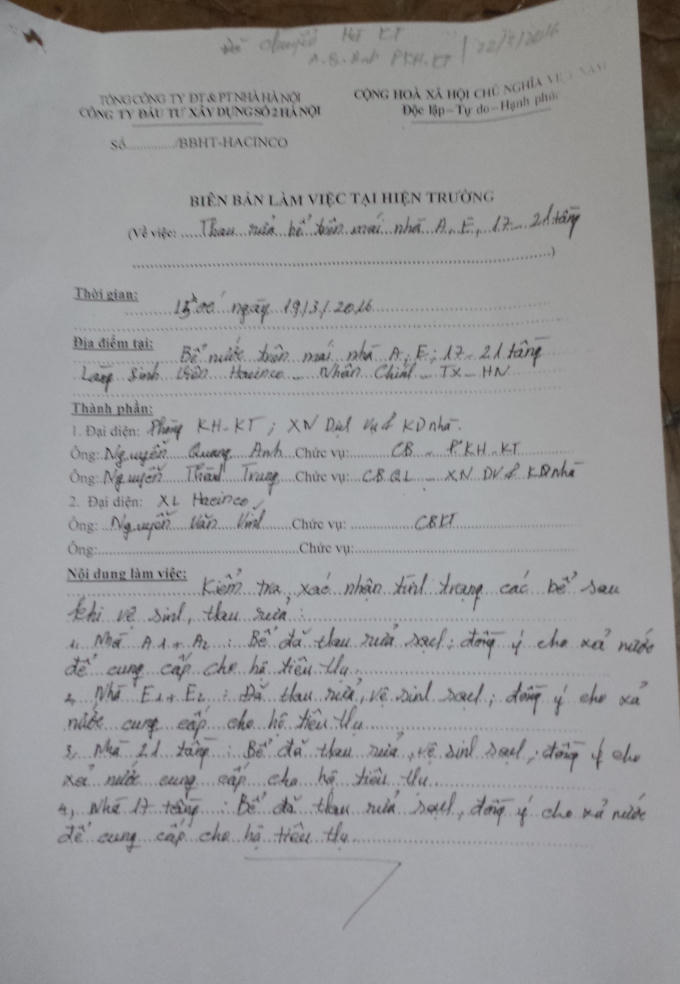 Đã chuyển Hết KT
A.Q.Anh PKH.KT 22/3/2016
TỔNG CÔNG TY ĐT & PT NHÀ HÀ NỘI
CỘNG HOÀ XÃ HỘI CHỦ NGHĨA VIỆT NAM
CÔNG TY ĐẦU TƯ XÂY DỰNG SỐ 2 HÀ NỘI
Độc lập – Tự do – Hạnh phúc
Số............../BBHT-HACINCO
BIÊN BẢN LÀM VIỆC TẠI HIỆN TRƯỜNG
(Về việc: Thau rửa bể trên mái nhà A, E, 17 - 21 tầng
)
Thời gian:
15h00' ngày 19/3/2016
Địa điểm tại: Bể nước trên mái nhà A, E; 17 - 21 tầng
Làng Sinh Viên Hacinco - Nhân Chính - TX - HN
Thành phần:
1. Đại diện: Phòng KH-KT; XN Dịch vụ & KD nhà.
Ông: Nguyễn Quang Anh Chức vụ: CB - P KH-KT
Ông: Nguyễn Thành Trung Chức vụ: CBQL - XN DV & KD nhà
2. Đại diện: XL Hacinco
Ông: Nguyễn Văn Vĩnh Chức vụ: CBKT
Ông: Chức vụ:
Nội dung làm việc: Kiểm tra, xác nhận tình trạng các bể sau
khi vệ sinh, thau rửa:
1, Nhà A1 + A2 : Bể đã thau rửa sạch; đồng ý cho xả nước
để cung cấp cho hộ tiêu thụ.
2, Nhà E1 + E2 : Đã thau rửa, vệ sinh sạch; đồng ý cho xả
nước cung cấp cho hộ tiêu thụ
3, Nhà 21 tầng : Bể đã thau rửa, vệ sinh sạch; đồng ý cho
xả nước cung cấp cho hộ tiêu thụ.
4, Nhà 17 tầng : Bể đã thau rửa sạch, đồng ý cho xả nước
để cung cấp cho hộ tiêu thụ.